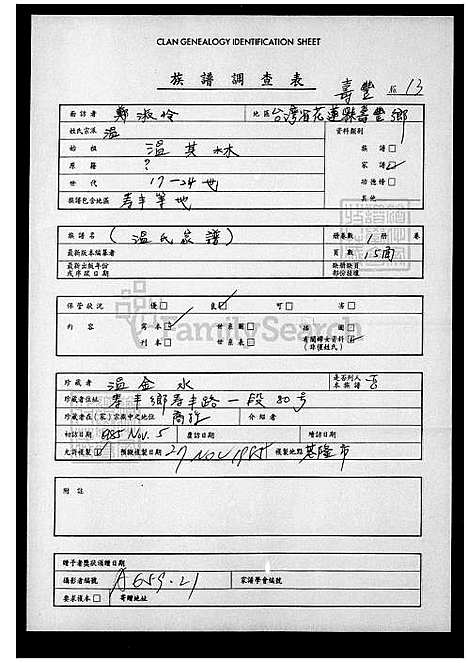 CLAN GENEALOGY IDENTIFICATION SHEET
族譜調查表
壽豐 13
面訪者 鄭淑怜 地區 台灣省花蓮縣壽豐鄉
姓氏宗派 溫 資料類別
始祖 溫其 族譜□
原籍 ? 家譜☑
世代 17-24世 功德榜□
族譜包含地區 壽丰等地 其他
族譜名 (溫氏家譜) 冊卷數 1冊 卷
最新版本編纂者 頁數 15面
最新出版年份 缺冊缺頁
或序跋日期 部份註壞
FamilySearch
保管狀況 優□ 良☑ 可□ 劣□
內容 寫本☑ 世系圖□ 插圖□
刊本□ 世系表□ 有關婦女資料☑
(非僅姓氏)
珍藏者 溫金水 是否列入本族譜 否
珍藏者住址 壽丰鄉壽丰路一段80号
珍藏者在(家)宗族中之地位 裔孫 介紹者
初訪日期 1985 Nov. 5 覆訪日期 續訪日期
允許複製☑ 預擬複製日期 27 NOV 1985 複製地點 基隆市
附註
贈予者獎狀頒贈日期
攝影者編號 A659-21 家譜學會編號
要求複本□ 寄贈地址